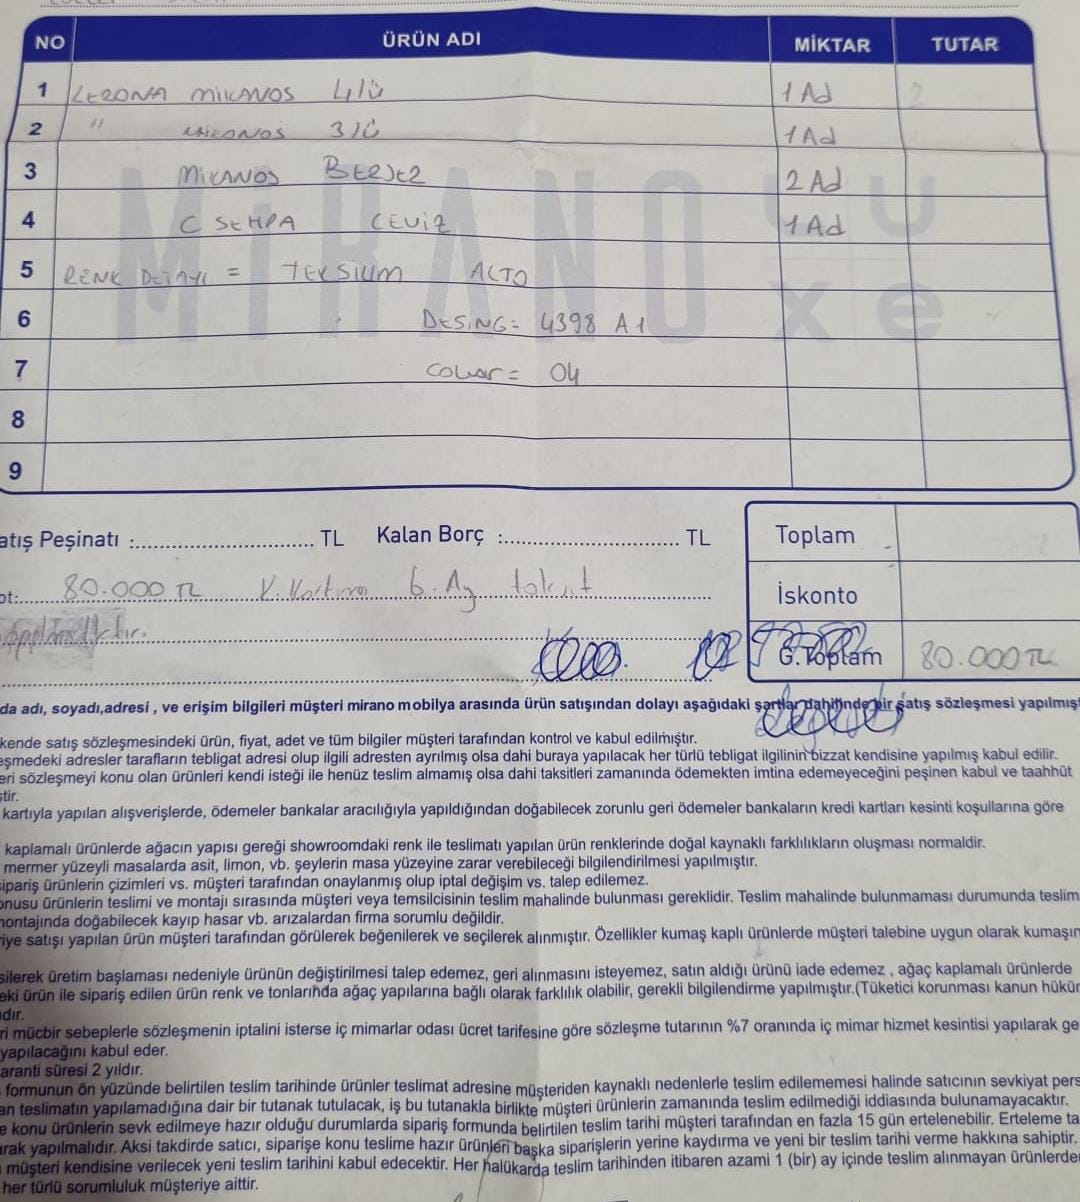 NO ÜRÜN ADI MİKTAR TUTAR
1 ZERONA MİKANOS 4lü 1 Ad
2 " MİKONOS 3lü 1 Ad
3 MİKANOS BERJER 2 Ad
4 C SEHPA CEVİZ 1 Ad
5 RENK DETAYI = TEKSIUM ALTO
6 DESİNG= 4398 A1
7 COLLAR= 04
8
9
MİRANO
atış Peşinatı :.................. TL Kalan Borç :.................. TL
Toplam
ot: 80.000 TL K. Kartına 6. Ay taksit
İskonto
G.Toplam 80.000 TL
da adı, soyadı,adresi , ve erişim bilgileri müşteri mirano mobilya arasında ürün satışından dolayı aşağıdaki şartlar dahilinde bir satış sözleşmesi yapılmış
kende satış sözleşmesindeki ürün, fiyat, adet ve tüm bilgiler müşteri tarafından kontrol ve kabul edilmiştir.
eşmedeki adresler tarafların tebligat adresi olup ilgili adresten ayrılmış olsa dahi buraya yapılacak her türlü tebligat ilgilinin bizzat kendisine yapılmış kabul edilir.
eri sözleşmeyi konu olan ürünleri kendi isteği ile henüz teslim almamış olsa dahi taksitleri zamanında ödemekten imtina edemeyeceğini peşinen kabul ve taahhüt
ştir.
kartıyla yapılan alışverişlerde, ödemeler bankalar aracılığıyla yapıldığından doğabilecek zorunlu geri ödemeler bankaların kredi kartları kesinti koşullarına göre
kaplamalı ürünlerde ağacın yapısı gereği showroomdaki renk ile teslimatı yapılan ürün renklerinde doğal kaynaklı farklılıkların oluşması normaldir.
mermer yüzeyli masalarda asit, limon, vb. şeylerin masa yüzeyine zarar verebileceği bilgilendirilmesi yapılmıştır.
sipariş ürünlerin çizimleri vs. müşteri tarafından onaylanmış olup iptal değişim vs. talep edilemez.
onusu ürünlerin teslimi ve montajı sırasında müşteri veya temsilcisinin teslim mahalinde bulunması gereklidir. Teslim mahalinde bulunmaması durumunda teslim
montajında doğabilecek kayıp hasar vb. arızalardan firma sorumlu değildir.
riye satışı yapılan ürün müşteri tarafından görülerek beğenilerek ve seçilerek alınmıştır. Özellikler kumaş kaplı ürünlerde müşteri talebine uygun olarak kumaşın
silerek üretim başlaması nedeniyle ürünün değiştirilmesi talep edemez, geri alınmasını isteyemez, satın aldığı ürünü iade edemez , ağaç kaplamalı ürünlerde
eki ürün ile sipariş edilen ürün renk ve tonlarında ağaç yapılarına bağlı olarak farklılık olabilir, gerekli bilgilendirme yapılmıştır.(Tüketici korunması kanun hükür
ıdır.
ri mücbir sebeplerle sözleşmenin iptalini isterse iç mimarlar odası ücret tarifesine göre sözleşme tutarının %7 oranında iç mimar hizmet kesintisi yapılarak ge
yapılacağını kabul eder.
aranti süresi 2 yıldır.
formunun ön yüzünde belirtilen teslim tarihinde ürünler teslimat adresine müşteriden kaynaklı nedenlerle teslim edilememesi halinde satıcının sevkiyat pers
an teslimatın yapılamadığına dair bir tutanak tutulacak, iş bu tutanakla birlikte müşteri ürünlerin zamanında teslim edilmediği iddiasında bulunamayacaktır.
e konu ürünlerin sevk edilmeye hazır olduğu durumlarda sipariş formunda belirtilen teslim tarihi müşteri tarafından en fazla 15 gün ertelenebilir. Erteleme ta
arak yapılmalıdır. Aksi takdirde satıcı, siparişe konu teslime hazır ürünleri başka siparişlerin yerine kaydırma ve yeni bir teslim tarihi verme hakkına sahiptir.
müşteri kendisine verilecek yeni teslim tarihini kabul edecektir. Her halükarda teslim tarihinden itibaren azami 1 (bir) ay içinde teslim alınmayan ürünlerde
her türlü sorumluluk müşteriye aittir.